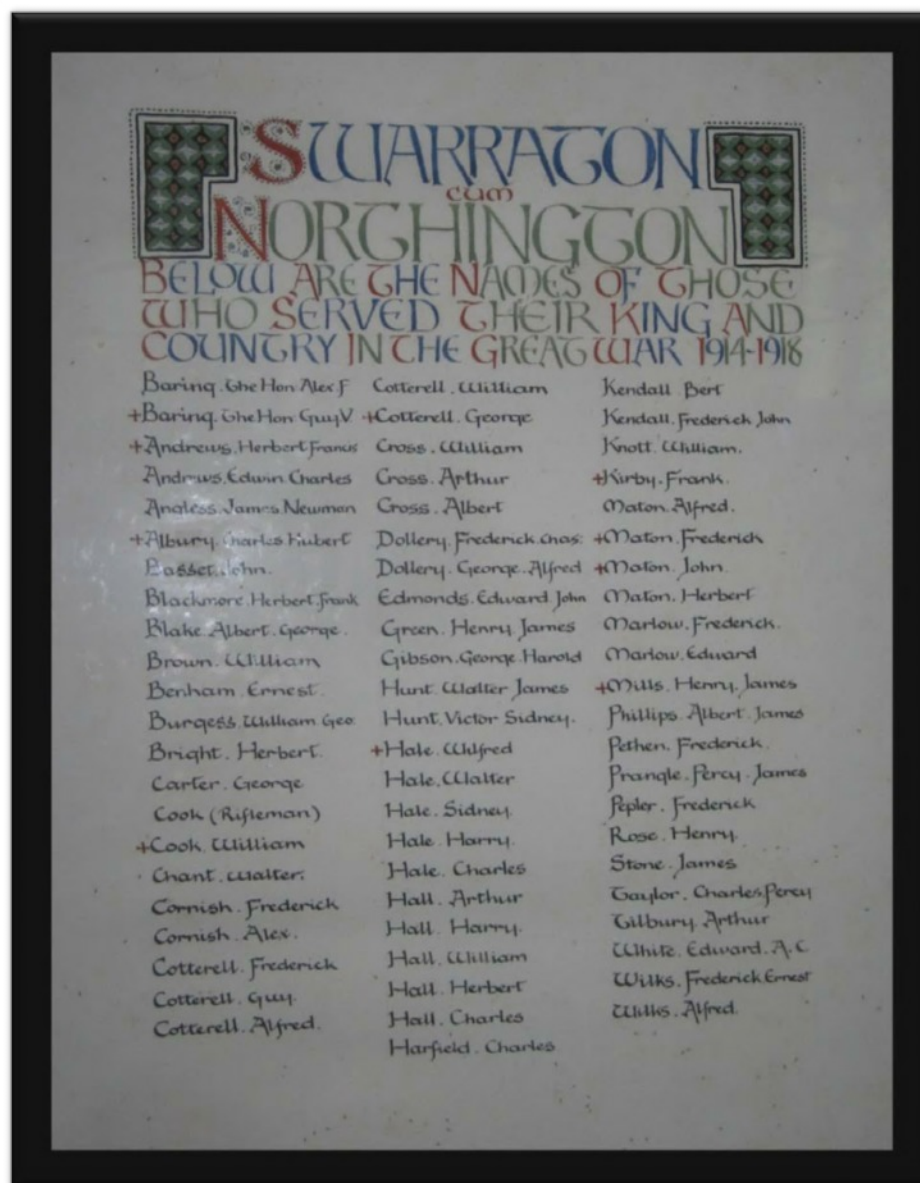 SWARRATON
cum
NORTHINGTON
BELOW ARE THE NAMES OF THOSE
WHO SERVED THEIR KING AND
COUNTRY IN THE GREAT WAR 1914-1918
Baring. The Hon Alex F
+Baring. The Hon Guy V.
+Andrews. Herbert Francis
Andrews. Edwin Charles
Angless. James. Newman
+Albury. Charles Hubert
Basset. John.
Blackmore. Herbert. Frank
Blake. Albert. George.
Brown. William
Benham. Ernest.
Burgess. William. Geo.
Bright. Herbert.
Carter. George
Cook (Rifleman)
+Cook. William
Chant. Walter.
Cornish. Frederick
Cornish. Alex.
Cotterell. Frederick
Cotterell. Guy.
Cotterell. Alfred.
Cotterell. William
+Cotterell. George
Cross. William
Cross. Arthur
Cross. Albert
Dollery. Frederick. Chas.
Dollery. George. Alfred
Edmonds. Edward. John
Green. Henry James
Gibson. George. Harold
Hunt. Walter James
Hunt. Victor Sidney.
+Hale. Wilfred
Hale. Walter
Hale. Sidney.
Hale. Harry.
Hale. Charles
Hall. Arthur
Hall. Harry.
Hall. William
Hall. Herbert
Hall. Charles
Harfield. Charles
Kendall. Bert
Kendall. Frederick John
Knott. William.
+Kirby. Frank.
Maton. Alfred.
+Maton. Frederick
+Maton. John.
Maton. Herbert
Marlow. Frederick.
Marlow. Edward
+Mills. Henry. James
Phillips. Albert. James
Pethen. Frederick.
Prangle. Percy. James
Pepler. Frederick
Rose. Henry.
Stone. James
Taylor. Charles. Percy
Tilbury. Arthur
White. Edward. A. C.
Wilks. Frederick Ernest
Wilks. Alfred.